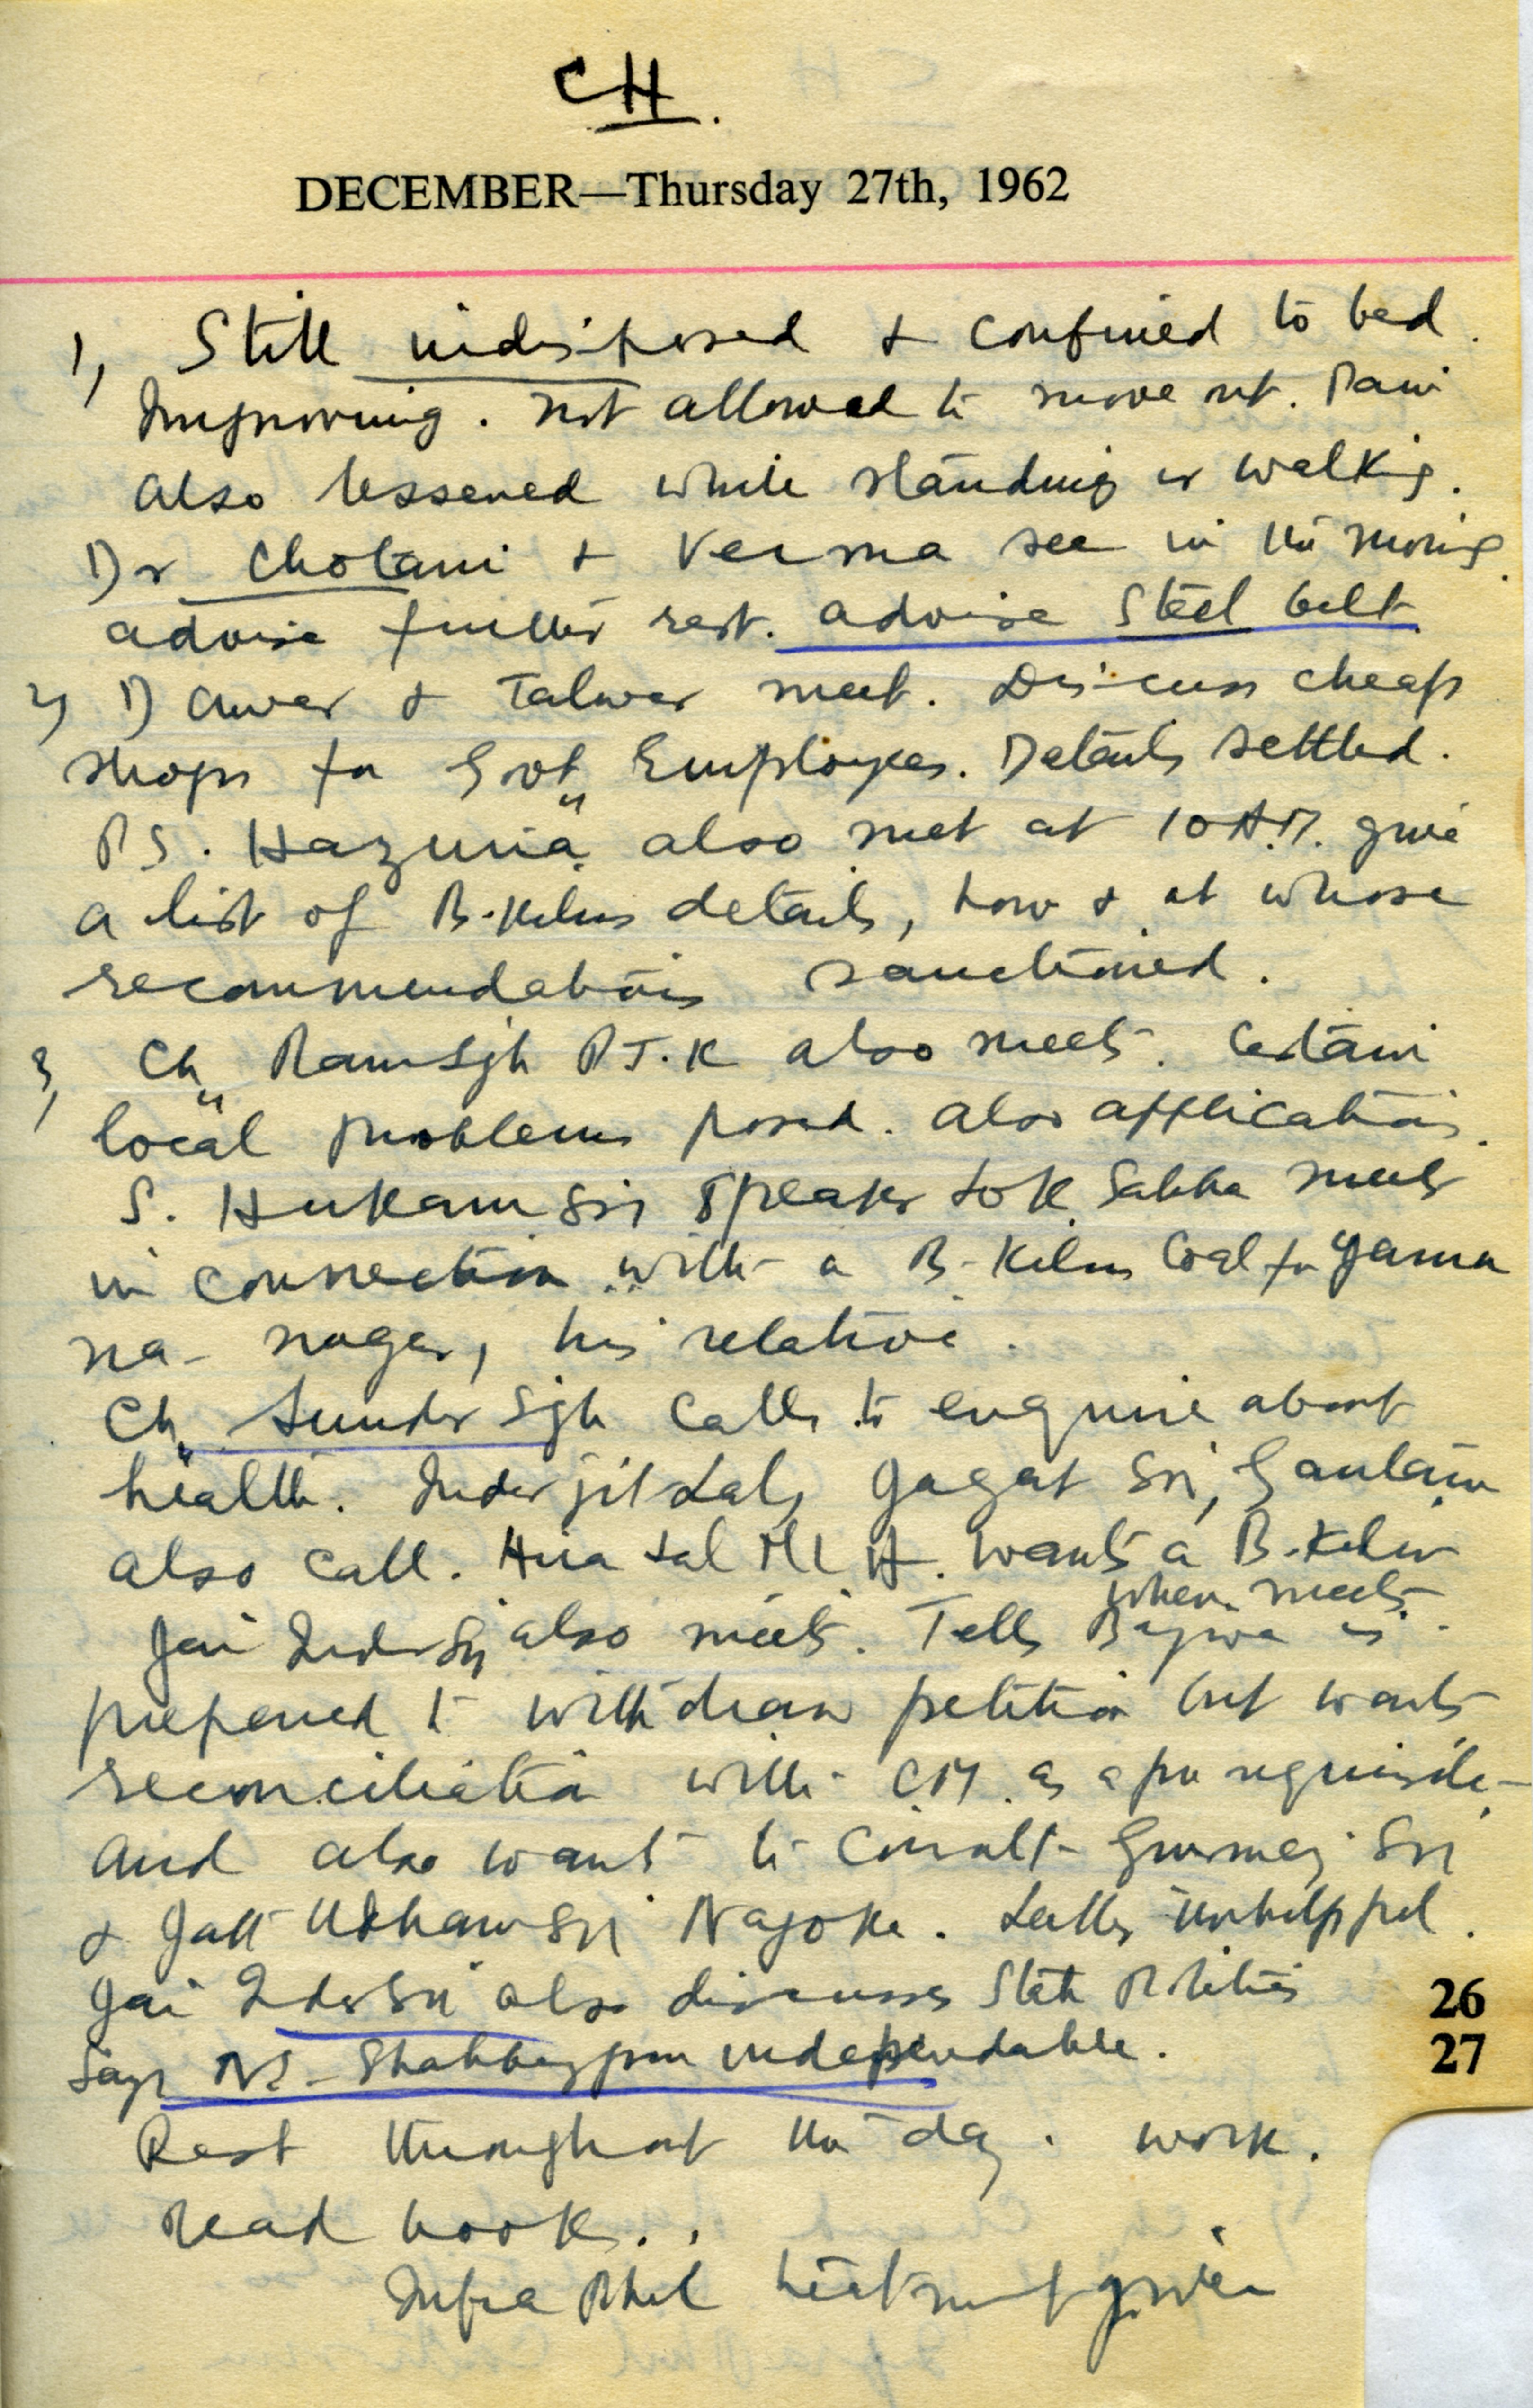 CH.
DECEMBER—Thursday 27th, 1962
1, Still indisposed & confined to bed.
Improving. Not allowed to move out. Pain
also lessened while standing or walking.
Dr Chotani & Verma see in the morning
advise further rest. advise Steel belt
2, & Talwar meet. Discuss cheap
shops for Govt Employees. Details settled.
P S. Hazuria also met at 10 A.M. give
a list of B-Kilns details, how & at whose
recommendations sanctioned.
3, Ch Ram Sgh P.T.K also meets. Certain
local problems posed. also applications.
S. Hukam Sn Speaker Lok Sabha meets
in connection with a B-Kilns Coal for Yamu
na-nagar, his relative.
Ch Sunder Sgh calls to enquire about
health. Inderjit Lal, Jagat Sn, Gautam
also call. Hira Lal wants a B-Kiln
when meets
Jai Inder Sn also meets. Tells Bajwa is
prepared to withdraw petition but wants
reconciliation with C.M. as a pre requisite
and also wants to consult Gurmej Sn
& Jatt Udham Sn Nagoke. Latter unhelpful.
Jai Inder Sn also discusses State Politics
26
Says NS- Shahbazpuri undependable.
27
Rest throughout the day. work.
read books..
Infra Phil treatment given